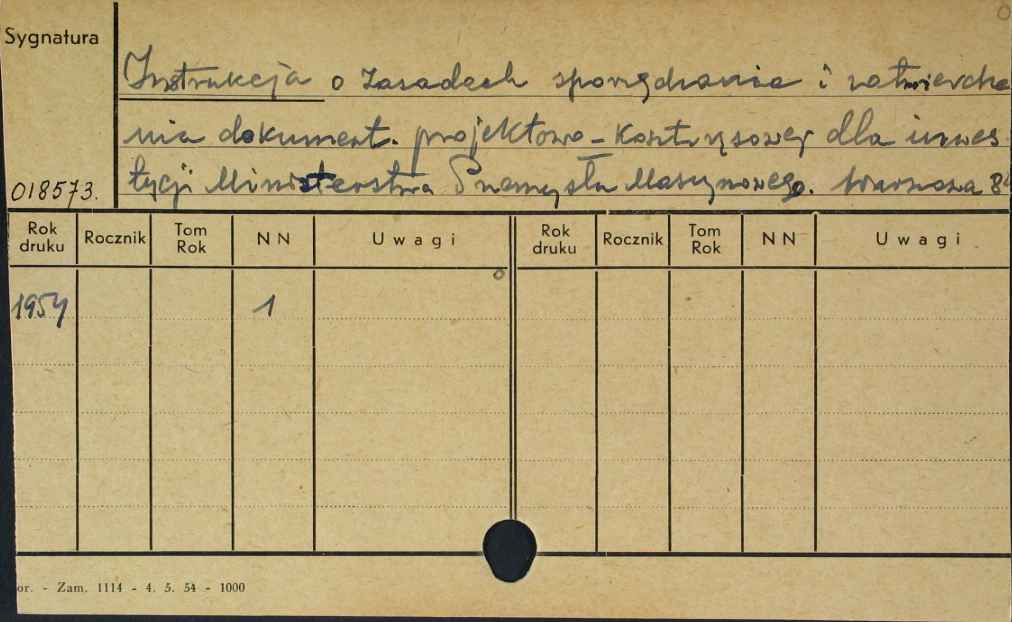 Sygnatura
Instrukcja o zasadach sporządzania i zatwierdza
nia dokument. projektowo-kosztorysowej dla inwes-
tycji Ministerstwa Przemysłu Maszynowego. Warszawa
018573.
Rok druku Rocznik Tom Rok NN Uwagi Rok druku Rocznik Tom Rok NN Uwagi
1954 1
or. - Zam. 1114 - 4. 5. 54 - 1000